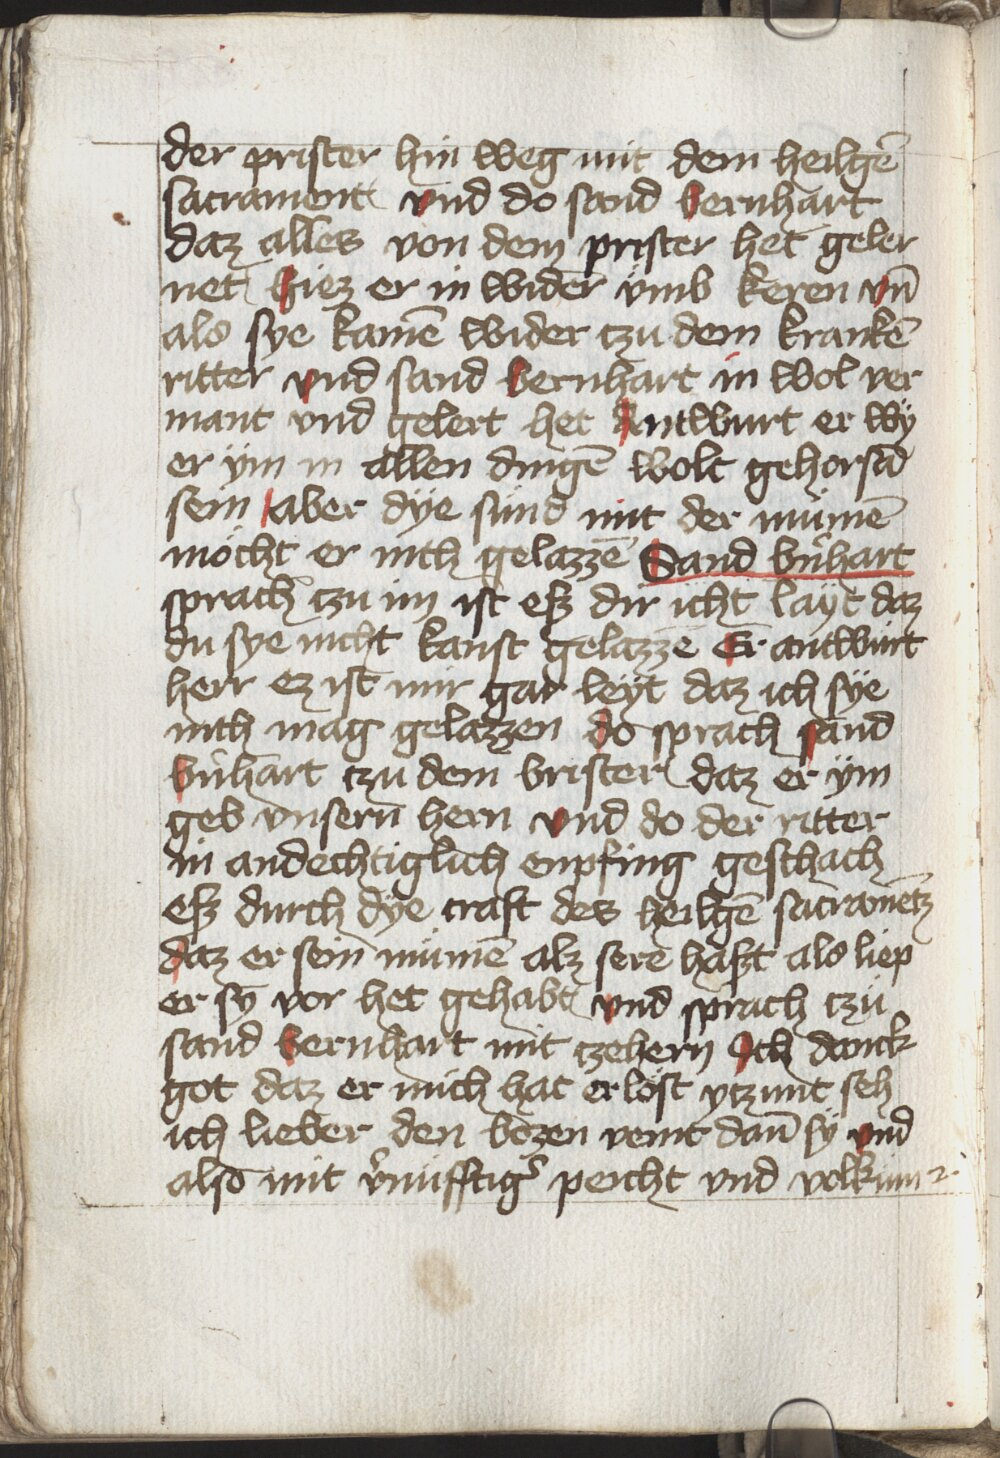 der prister hin weg mit dem heilgē
sacrament vnd do sand bernhart
daz alles von dem prister het geler
net hiez er in wider vmb keren vn̄
als sye kamē wider tzu dem krankē
ritter vnd sand bernhart in wol ver
mant vnd gelert het Antwurt er wÿ
er ÿm in allen dingē wolt gehorsā
sein aber dÿe sünd mit der mümē
möcht er nith gelazzē Sand bn̄hart
sprach tzu im ist esz dir icht layt daz
du sye nicht kanst gelazzē Er antwurt
herr ez ist mir gar leÿt daz ich sÿe
nith mag gelazzen do sprach sand
bn̄hart tzu dem brister daz er ÿm
geb vnsern hern vnd do der ritter
in andechtiglich enpfing geschach
esz durch dÿe craft des heilgē sacramētz
daz er sein mümē alz sere haszt als liep
er sȳ vor het gehabt vnd sprach tzü
sand bernhart mit tzehern Ich danck
got daz er mich hat erlöst ytzunt seh
ich lieber den bözen veint dan̄ sÿ vnd
also mit v̄nüfftigʼ peicht vnd volkum